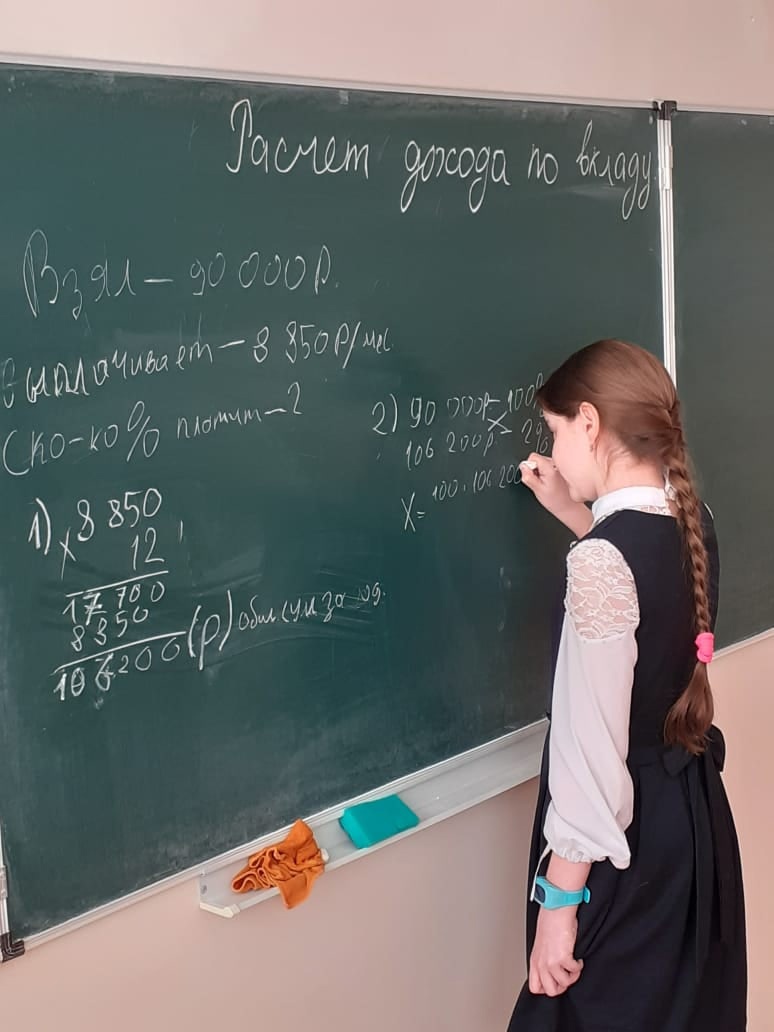 Расчет дохода по вкладу
Взял – 90 000 р.
выплачивает – 8 850 р/мес
Ско-ко % платит – ?
1) 8 850
× 12
17 700
8850
106200 (р) общ сум за год.
2) 90 000р – 100%
106 200р – ?%
X = 100 · 106 200